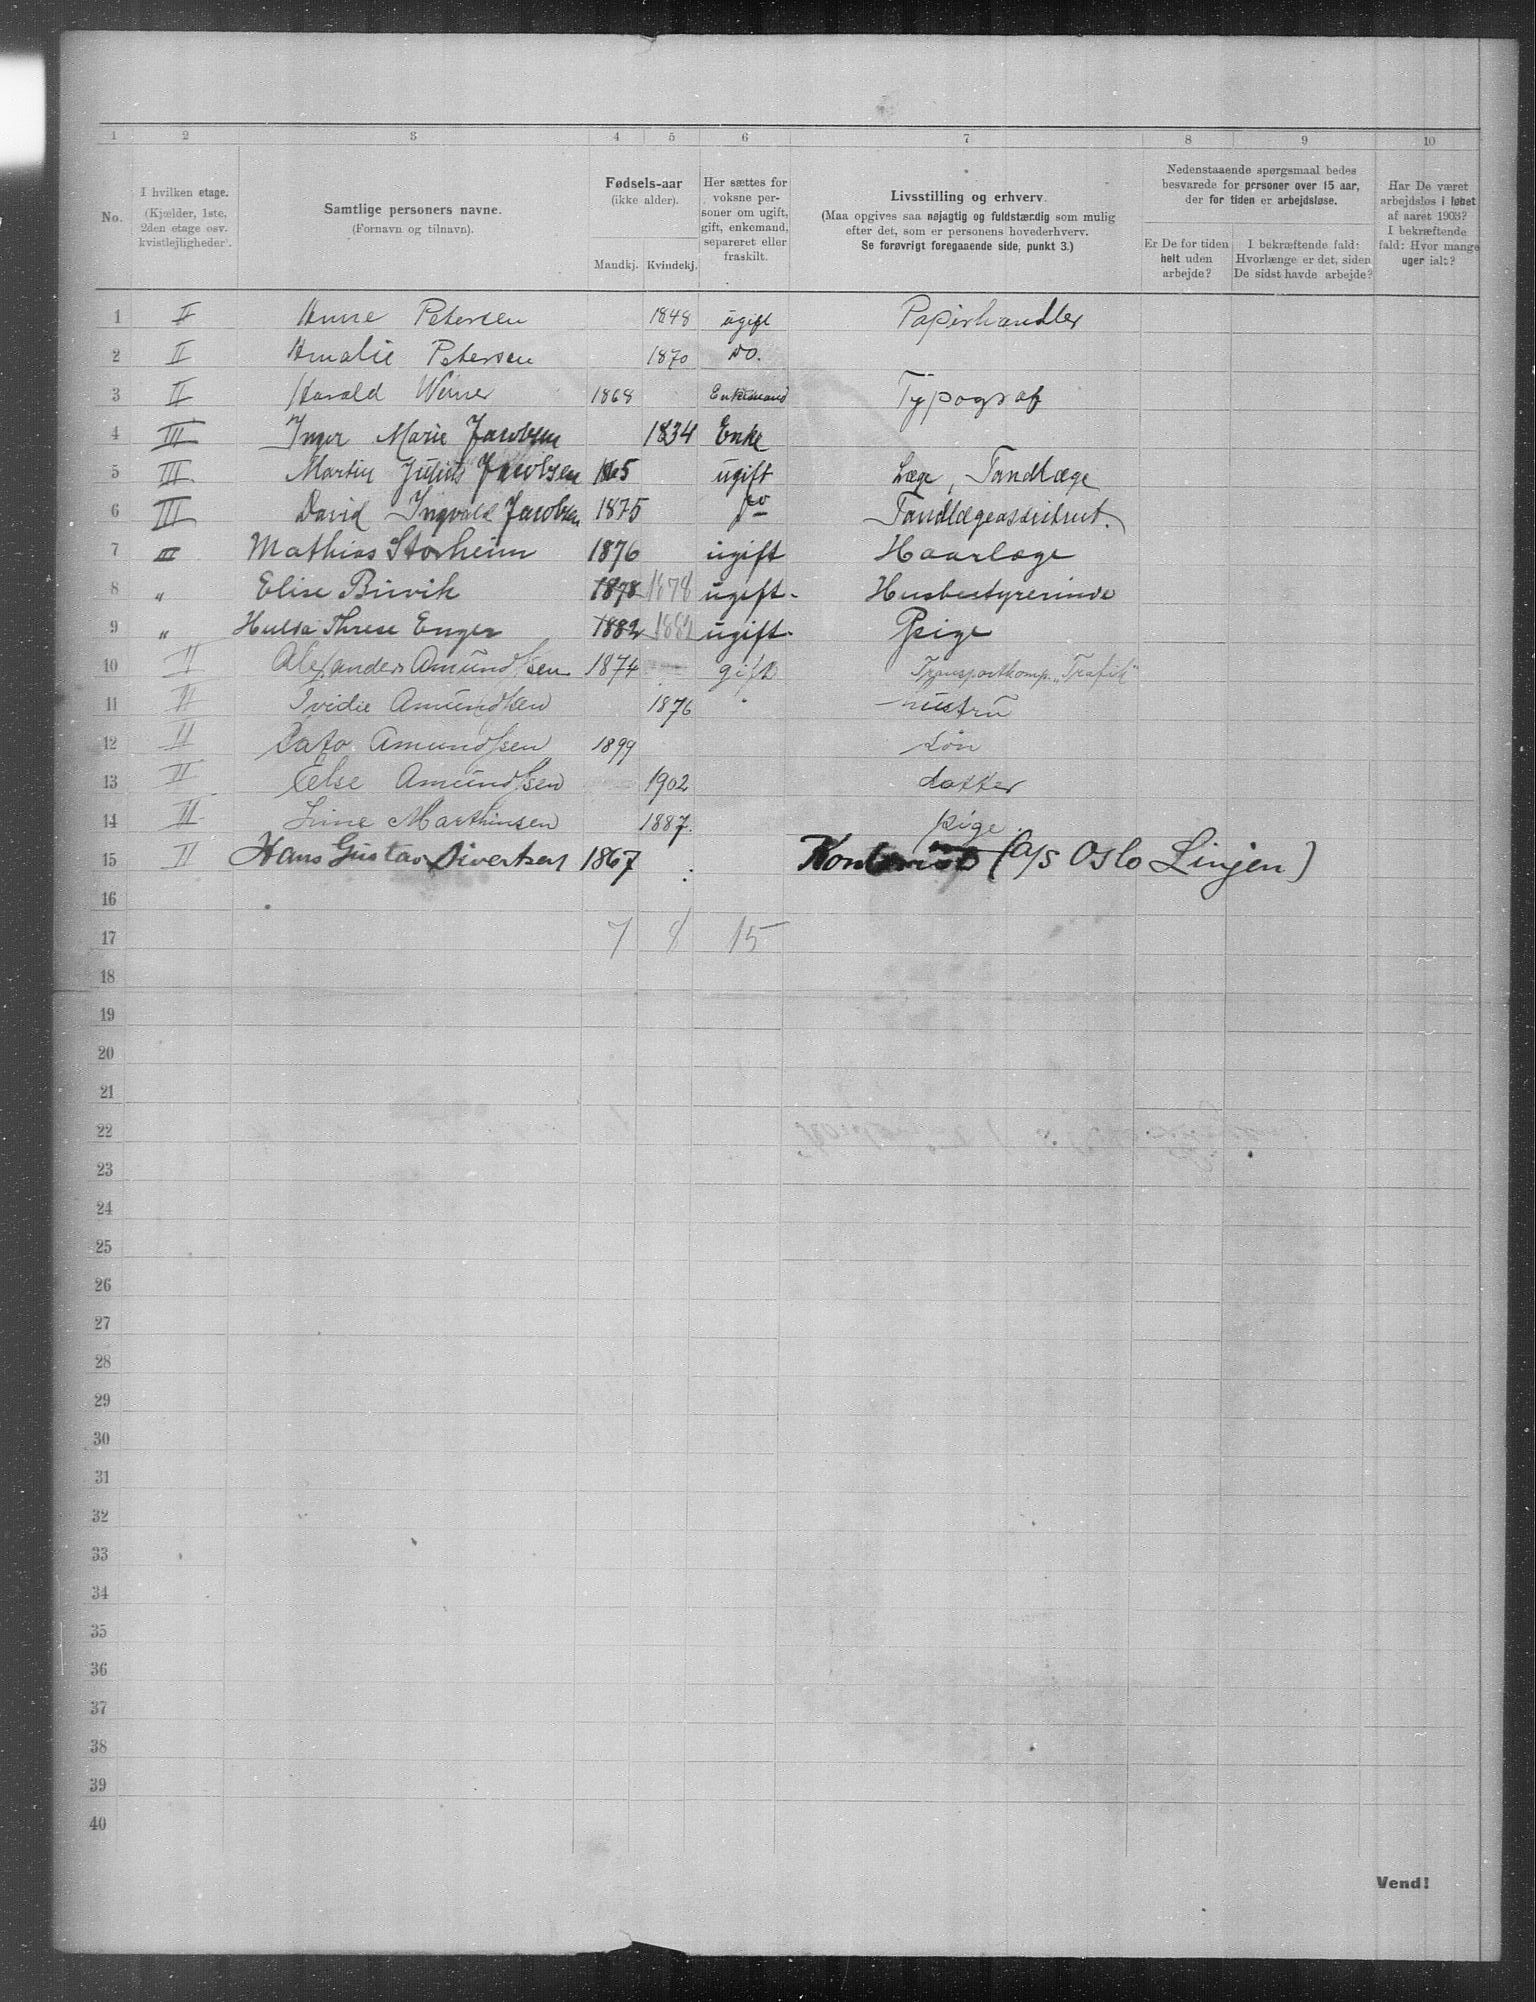 1 2 3 4 5 6 7 8 9 10
No.
I hvilken etage.
(Kjælder, 1ste,
2den etage osv.
kvistlejligheder).
Samtlige personers navne.
(Fornavn og tilnavn).
Fødsels-aar
(ikke alder).
Mandkj. Kvindekj.
Her sættes for
voksne per-
soner om ugift,
gift, enkemand,
separeret eller
fraskilt.
Livsstilling og erhverv.
(Maa opgives saa nøjagtig og fuldstændig som mulig
efter det, som er personens hovederhverv.
Se forøvrigt foregaaende side, punkt 3.)
Nedenstaaende spørgsmaal bedes
besvarede for personer over 15 aar,
der for tiden er arbejdsløse.
Er De for tiden
helt uden
arbejde?
I bekræftende fald:
Hvorlænge er det, siden
De sidst havde arbejde?
Har De været
arbejdsløs i løbet
af aaret 1903?
I bekræftende
fald: Hvor mange
uger ialt?
1 II Anne Petersen 1848 ugift Papirhandler
2 II Amalie Petersen 1870 do.
3 II Harald 1868 Enkemand Typograf
4 III Inger Marie Jacobsen 1834 Enke
5 III Martin Julius Jacobsen 1865 ugift Læge, Tandlæge
6 III David Ingvald Jacobsen 1875 do Tandlægeassistent.
7 III Mathias Storheim 1876 ugift Haarlæge
8 " Elise Birvik 1878 1878 ugift. Husbestyrerinde
9 " Hulda Threse Enger 1882 1882 ugift. Pige
10 II Alexander Amundssen 1874 gift Transportkomp. "Trafik"
11 II Amundssen 1876 " Hustru
12 II Amundssen 1899 søn
13 II Else Amundssen 1902 datter
14 II Marthinsen 1887. pige.
15 II Hans Gustav Sivertsen 1867 Kontorist (A/S Oslo Linjen)
16
17 7 8 15
18
19
20
21
22
23
24
25
26
27
28
29
30
31
32
33
34
35
36
37
38
39
40
Vend!